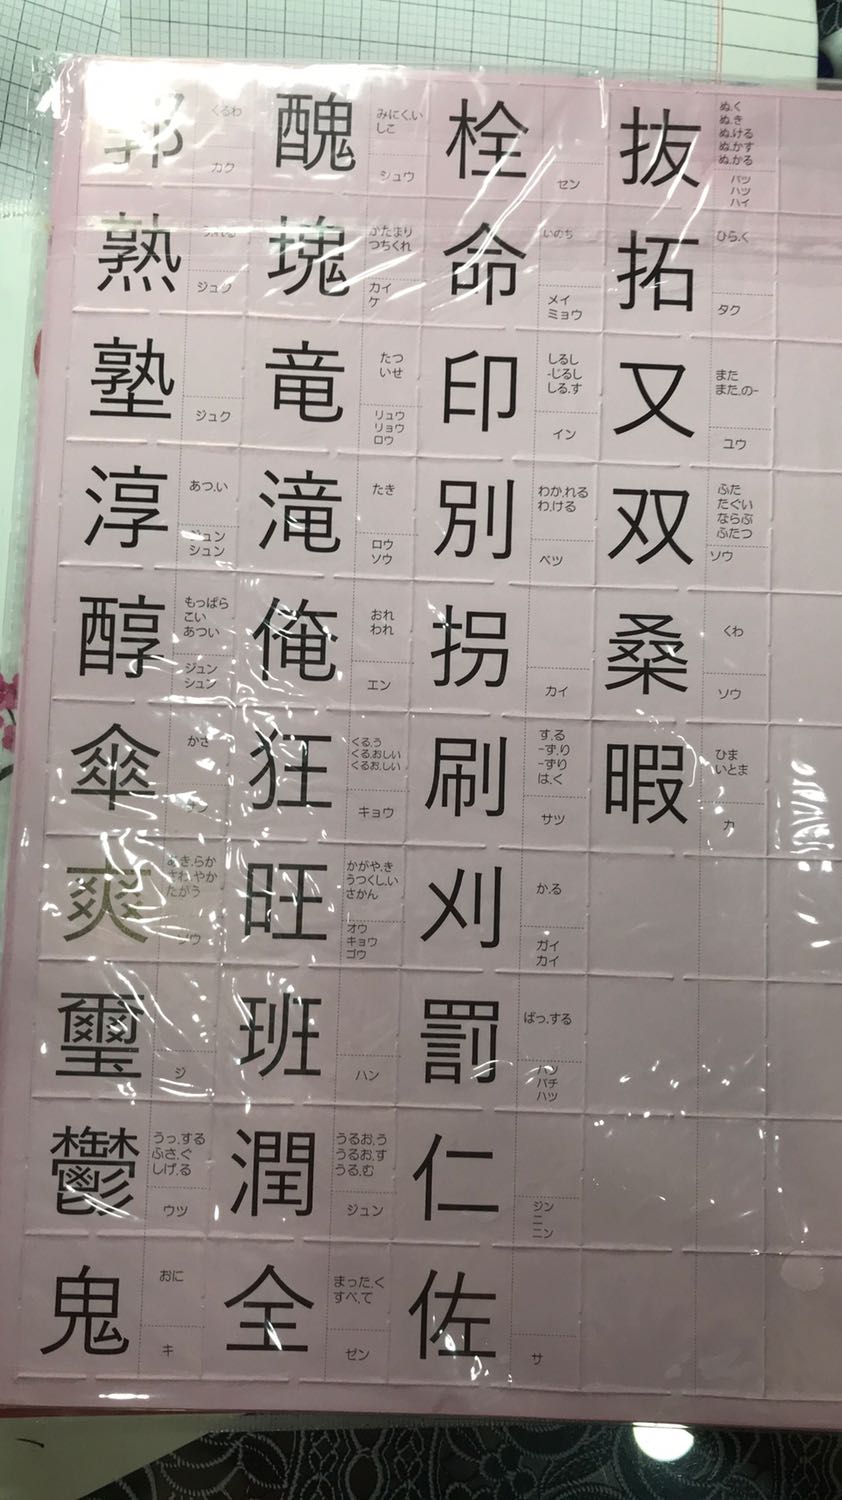 郭
くるわ
カク
熟
う.れる
ジュク
塾
ジュク
淳
あつ.い
ジュン
シュン
醇
もっぱら
こい
あつい
ジュン
シュン
傘
かさ
サン
爽
あき.らか
さわ.やか
たがう
ソウ
璽
ジ
鬱
うっ.する
ふさ.ぐ
しげ.る
ウツ
鬼
おに
キ
醜
みにく.い
しこ
シュウ
塊
かたまり
つちくれ
カイ
ケ
竜
たつ
いせ
リュウ
リョウ
ロウ
滝
たき
ロウ
ソウ
俺
おれ
われ
エン
狂
くる.う
くる.おしい
くるお.しい
キョウ
旺
かがや.き
うつくし.い
さかん
オウ
キョウ
ゴウ
班
ハン
潤
うるお.う
うるお.す
うる.む
ジュン
全
まった.く
すべ.て
ゼン
栓
セン
命
いのち
メイ
ミョウ
印
しるし
-じるし
しる.す
イン
別
わか.れる
わ.ける
ベツ
拐
カイ
刷
す.る
-ず.り
-ずり
は.く
サツ
刈
か.る
ガイ
カイ
罰
ばっ.する
バツ
バチ
ハツ
仁
ジン
ニ
ニン
佐
サ
抜
ぬ.く
ぬ.き
ぬ.ける
ぬ.かす
ぬ.かる
バツ
ハツ
ハイ
拓
ひら.く
タク
又
また
また.の-
ユウ
双
ふた
たぐい
ならぶ
ふたつ
ソウ
桑
くわ
ソウ
暇
ひま
いとま
カ